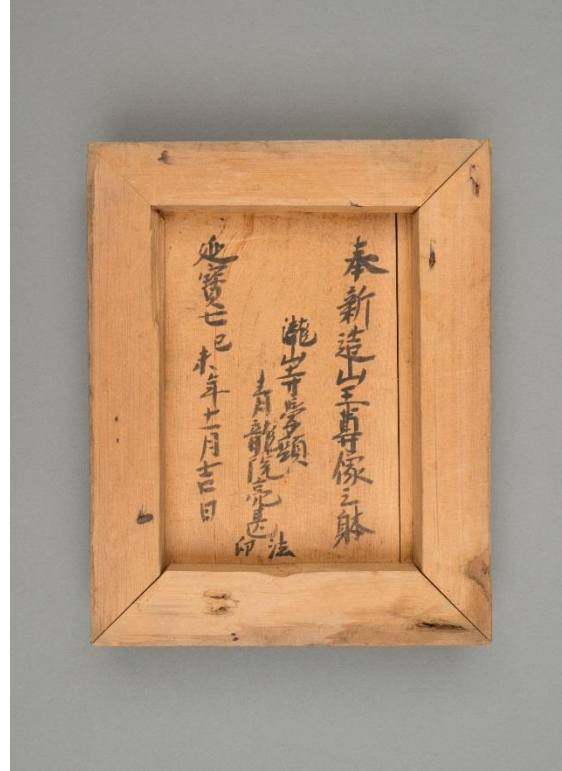 奉新造山王尊像之躰
瀧山寺学頭
青龍院亮甚法印
延寳七己未年十一月吉日